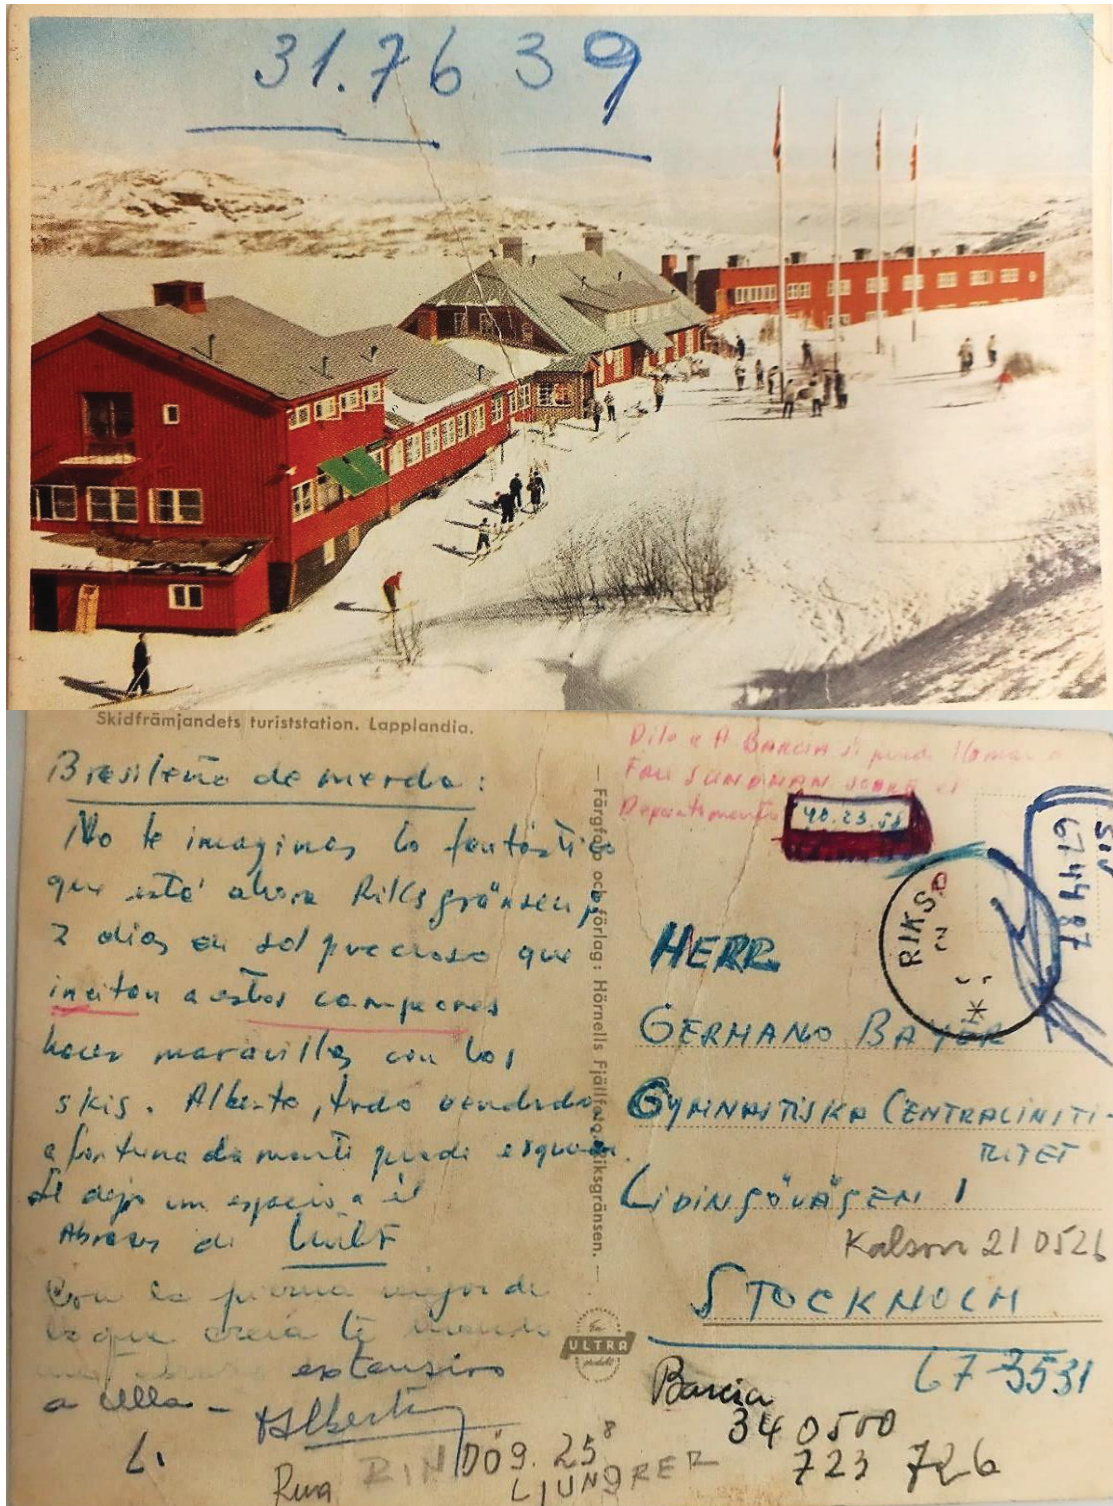 31.76 39
Skidfrämjandets turiststation. Lapplandia.
Brasileño de merda:
No te imaginas lo fantástico
que está ahora Riksgränsen,
2 dias en sol precioso que
incitan a estos campeones
hacer maravillas con los
skis. Alberto, todo vendado
afortunadamente puede
Le dejo un espacio a él
Abrazos de
Con la pierna mejor de
lo que creía te mando
extensivo
a Ulla -
Alberto
L.
Färgfoto och förlag: Hörnells Fjällfoto, Riksgränsen.
ULTRA
Dile a A BARCIA si puede llamar a
FRU SUNDMAN sobre el
Departamento 40.23.58
RIKSG
67 44 87
HERR
GERMANO BAYER
GYMNASTISKA CENTRALINSTI-
TUTET
LIDINGÖVÄGEN 1
Kalson 210526
STOCKHOLM
67-3531
Barcia
340500
723 726
RINDÖG. 25 8
Runa LJUNGREN